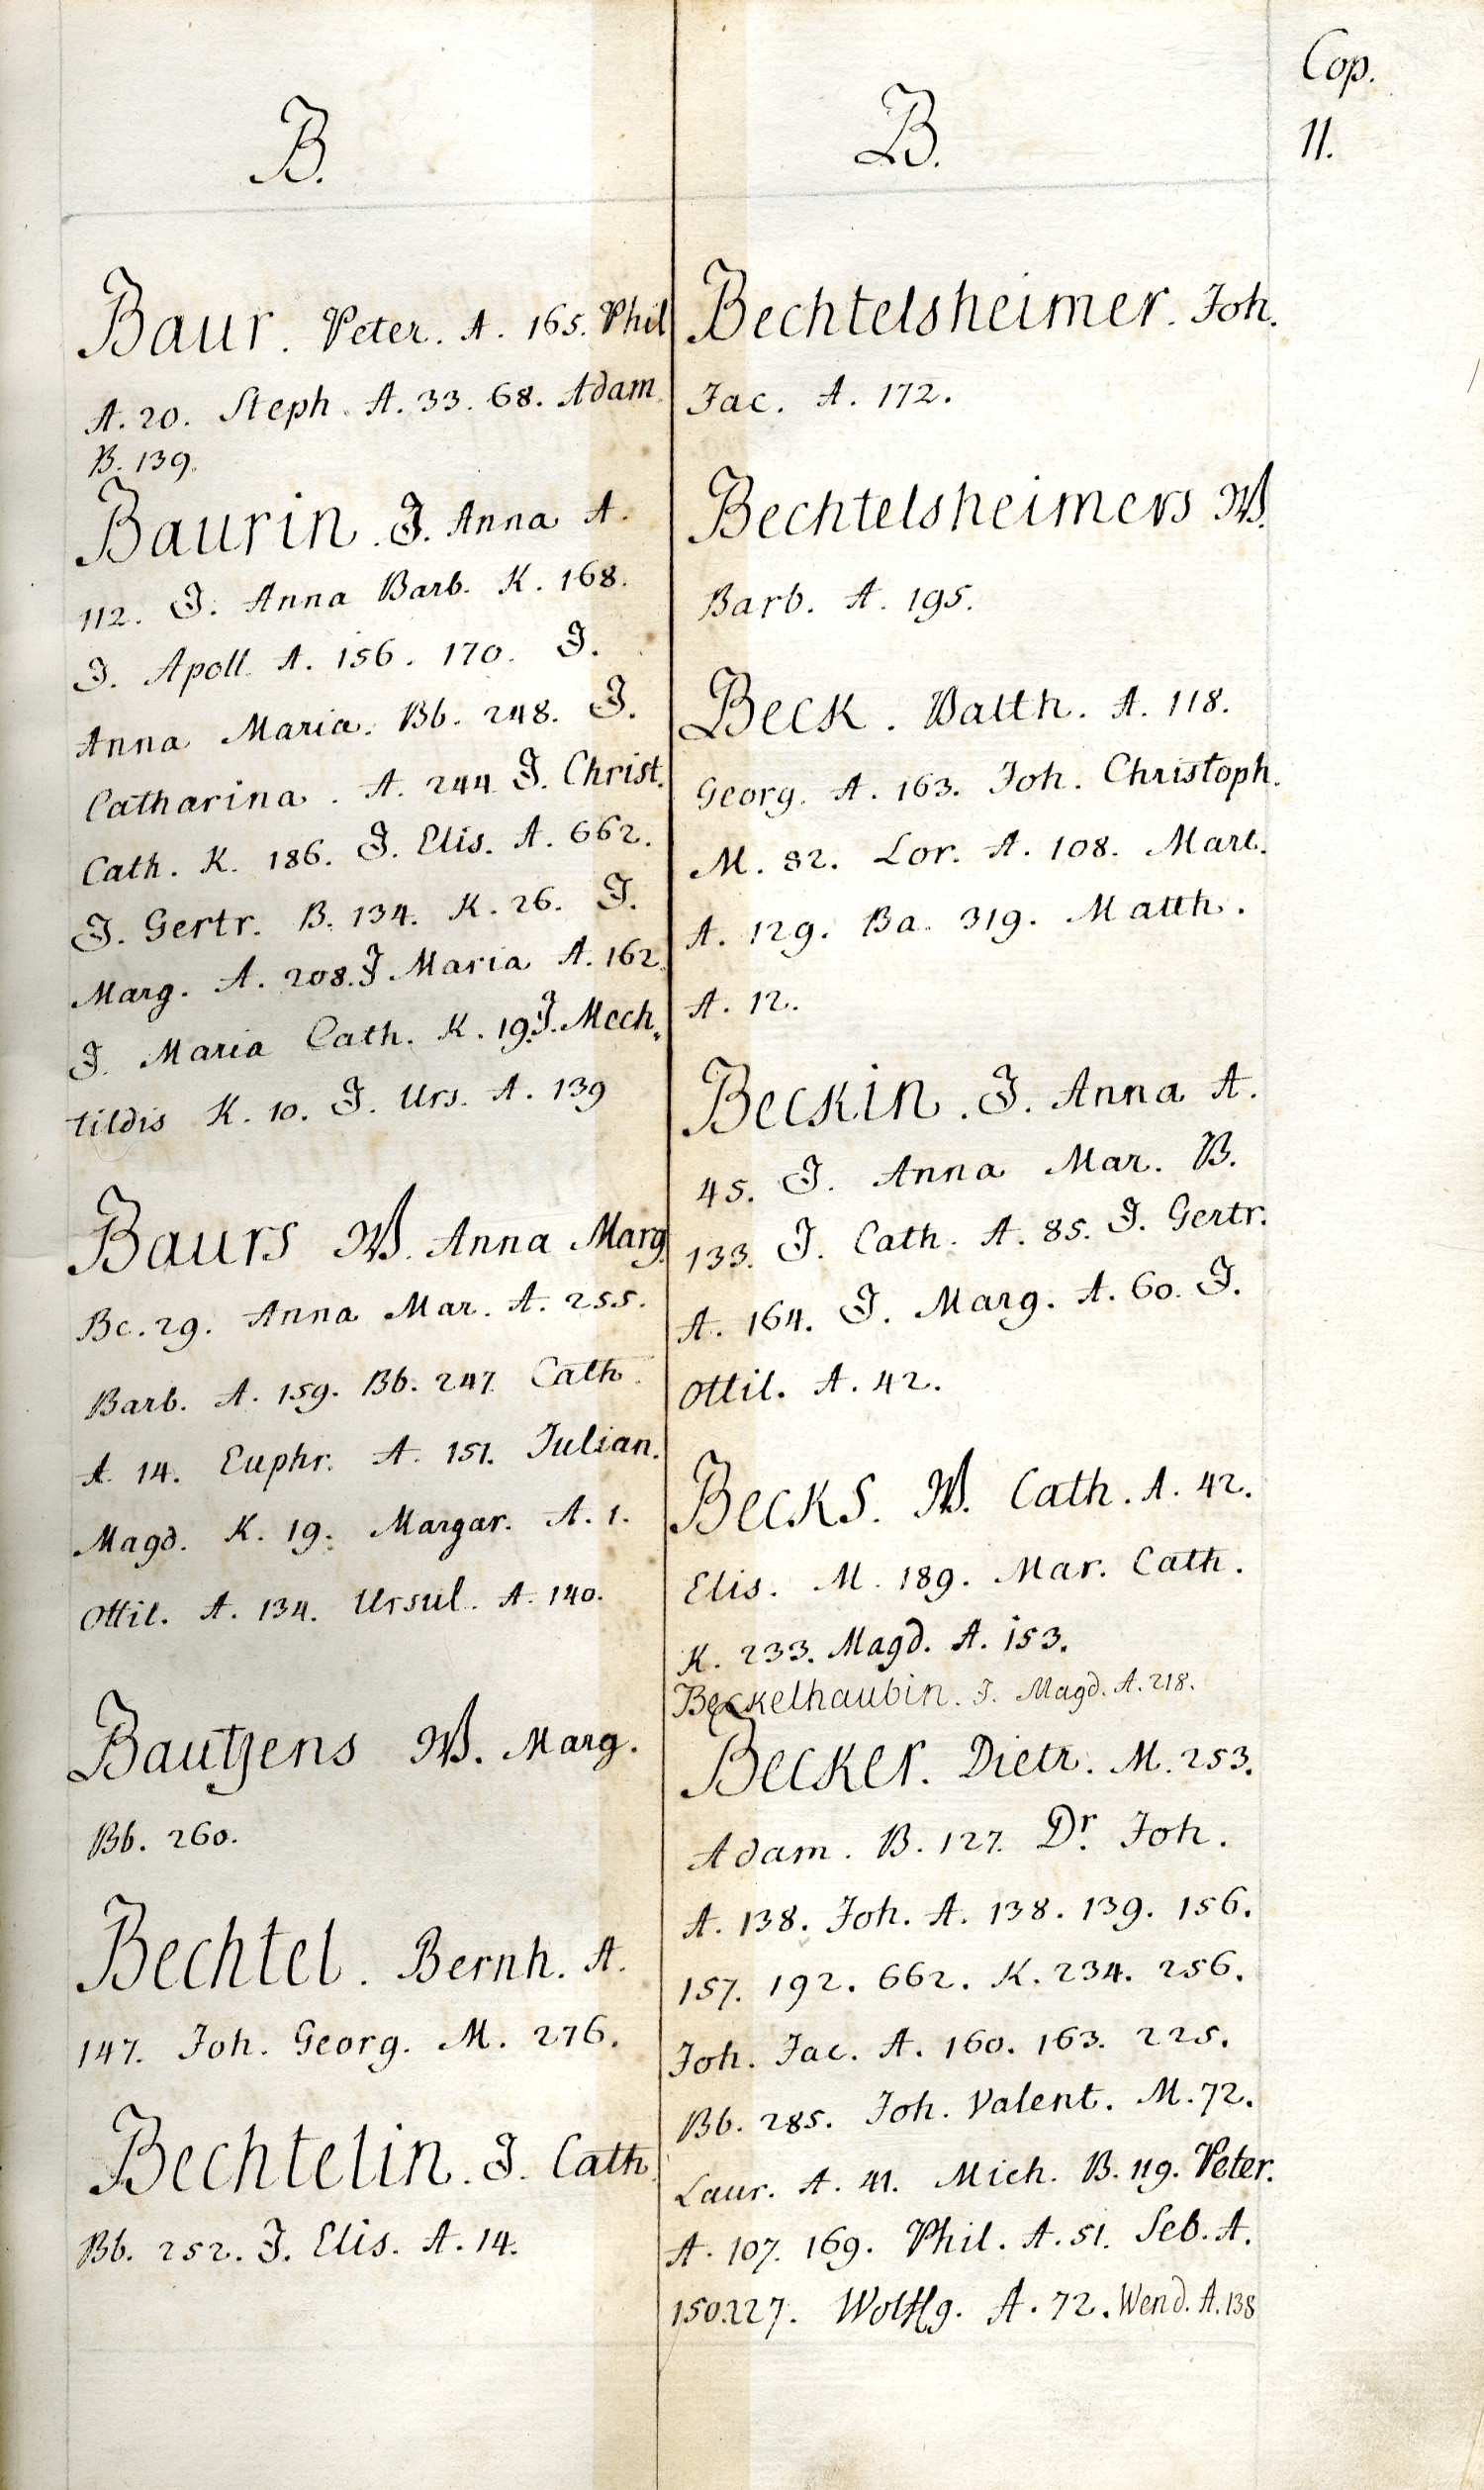 Cop.
11.
B.
Baur. Peter. A. 165. Phil
A. 20. Steph. A. 33. 68. Adam.
B. 139.
Baurin. J. Anna A.
112. J. Anna Barb. K. 168.
J. Apoll. A. 156. 170. J.
Anna Maria. Bb. 248. J.
Catharina. A. 244. J. Christ.
Cath. K. 186. J. Elis. A. 662.
J. Gertr. B. 134. K. 26. J.
Marg. A. 208. J Maria A. 162.
J. Maria Cath. K. 19. J. Mech„
tildis K. 10. J. Urs. A. 139
Baurs W. Anna Marg.
Bc. 29. Anna Mar. A. 255.
Barb. A. 159. Bb. 247. Cath.
A. 14. Euphr. A. 151. Julian.
Magd. K. 19. Margar. A. 1.
Ottil. A. 134. Ursul. A. 140.
Bautzens W. Marg.
Bb. 260.
Bechtel. Bernh. A.
147. Joh. Georg. M. 276.
Bechtelin. J. Cath.
Bb. 252. J. Elis. A. 14.
B.
Bechtelsheimer. Joh.
Jac. A. 172.
Bechtelsheimers W.
Barb. A. 195.
Beck. Balth. A. 118.
Georg. A. 163. Joh. Christoph.
M. 82. Lor. A. 108. Mart.
A. 129. Ba. 319. Matth.
A. 12.
Beckin. J. Anna A.
45. J. Anna Mar. B.
133. J. Cath. A. 85. J. Gertr.
A. 164. J. Marg. A. 60. J.
Ottil. A. 42.
Becks. W. Cath. A. 42.
Elis. M. 189. Mar. Cath.
K. 233. Magd. A. 153.
Beckelhaubin. J. Magd. A. 218.
Becker. Dietr. M. 253.
Adam. B. 127. Dr. Joh.
A. 138. Joh. A. 138. 139. 156.
157. 192. 662. K. 234. 256.
Joh. Jac. A. 160. 163. 225.
Bb. 285. Joh. Valent. M. 72.
Laur. A. 41. Mich. B. 119. Peter.
A. 107. 169. Phil. A. 51. Seb. A.
150. 227. Wolffg. A. 72. Wend. A. 138